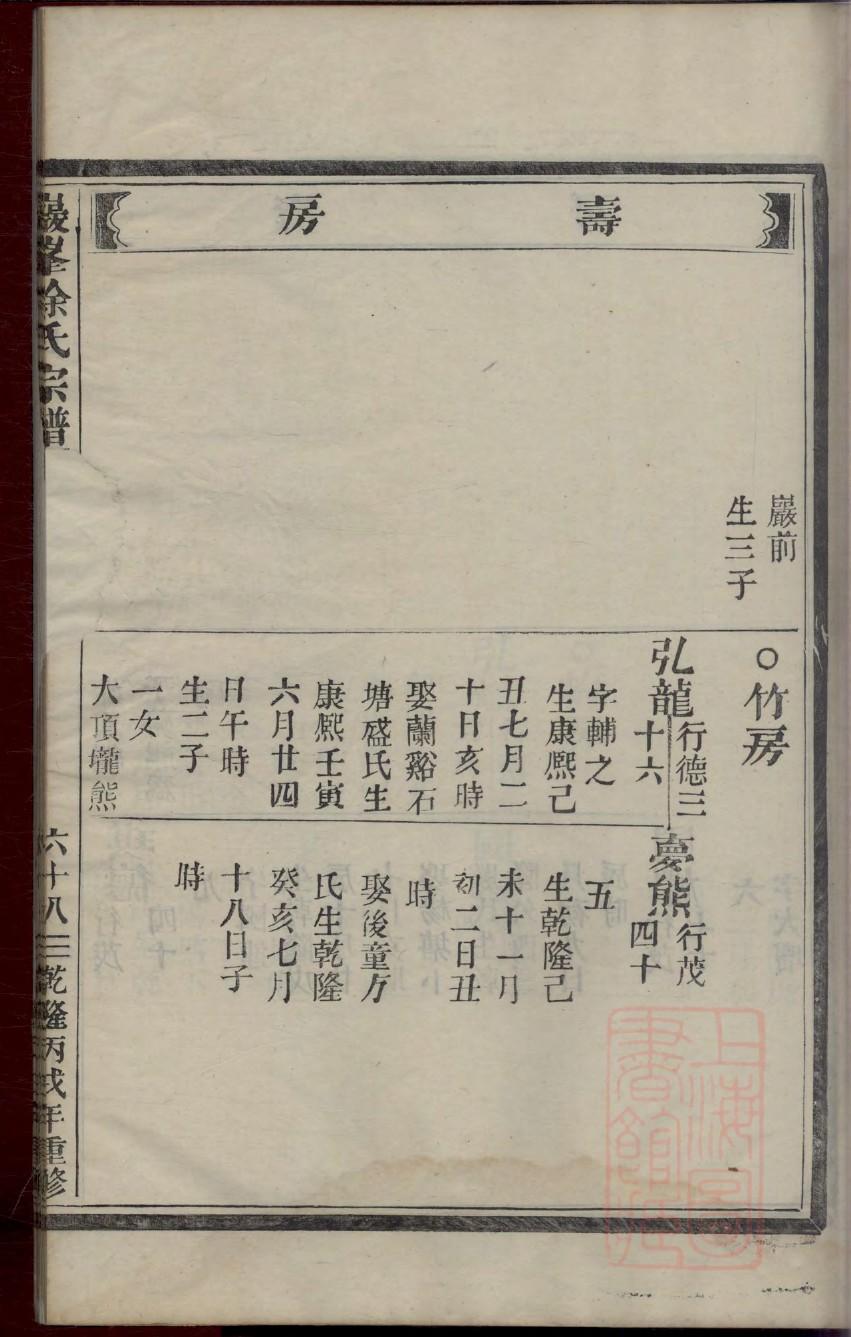 壽房
巖前
生三子
○竹房
弘龍行德三
十六
字輔之
生康熈己
丑七月二
十日亥時
娶蘭谿石
塘盛氏生
康熈壬寅
六月廿四
日午時
生二子
一女
大頂壠熊
夣熊行茂
四十
五
生乾隆己
未十一月
初二日丑
時
娶後童方
氏生乾隆
癸亥七月
十八日子
時
巖峯徐氏宗譜
六十八
乾隆丙戌年重修
上海圖書館藏